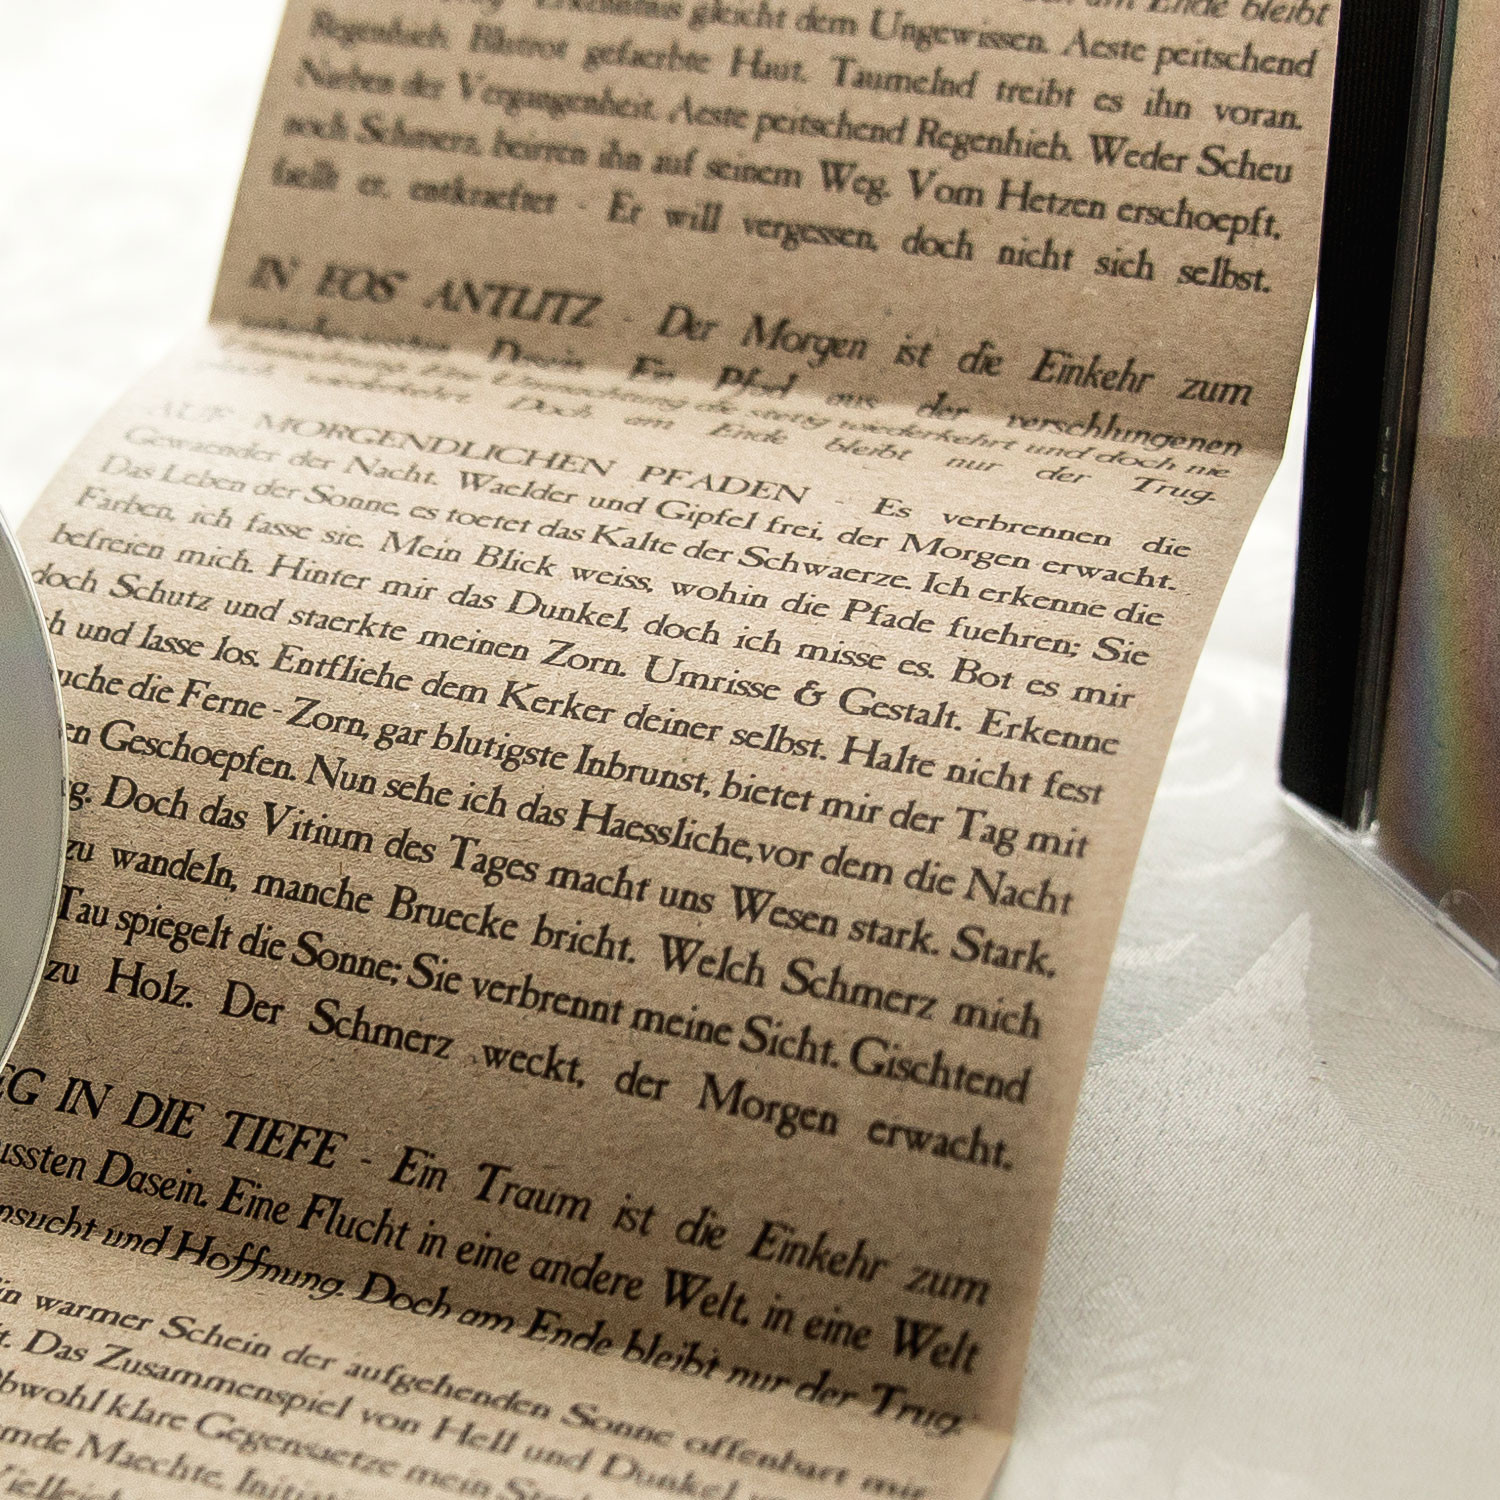 am Ende bleibt
gleicht dem Ungewissen. Aeste peitschend
Regenhieb. Blutrot gefaerbte Haut. Taumelnd treibt es ihn voran.
Nieben der Vergangenheit. Aeste peitschend Regenhieb. Weder Scheu
noch Schmerz, beirren ihn auf seinem Weg. Vom Hetzen erschoepft,
faellt er, entkraeftet - Er will vergessen, doch nicht sich selbst.
IN EOS' ANTLITZ - Der Morgen ist die Einkehr zum
Dasein. Ein Pfad aus der verschlungenen
Eine Umnachtung die stetig wiederkehrt und doch nie
wiederkehrt. Doch am Ende bleibt nur der Trug.
AUF MORGENDLICHEN PFADEN - Es verbrennen die
Gewaender der Nacht. Waelder und Gipfel frei, der Morgen erwacht.
Das Leben der Sonne, es toetet das Kalte der Schwaerze. Ich erkenne die
Farben, ich fasse sie. Mein Blick weiss, wohin die Pfade fuehren; Sie
befreien mich. Hinter mir das Dunkel, doch ich misse es. Bot es mir
doch Schutz und staerkte meinen Zorn. Umrisse & Gestalt. Erkenne
und lasse los. Entfliehe dem Kerker deiner selbst. Halte nicht fest
die Ferne - Zorn, gar blutigste Inbrunst, bietet mir der Tag mit
Geschoepfen. Nun sehe ich das Haessliche, vor dem die Nacht
Doch das Vitium des Tages macht uns Wesen stark. Stark,
zu wandeln, manche Bruecke bricht. Welch Schmerz mich
Tau spiegelt die Sonne; Sie verbrennt meine Sicht. Gischtend
zu Holz. Der Schmerz weckt, der Morgen erwacht.
IN DIE TIEFE - Ein Traum ist die Einkehr zum
ussten Dasein. Eine Flucht in eine andere Welt, in eine Welt
nsucht und Hoffnung. Doch am Ende bleibt nur der Trug.
in warmer Schein der aufgehenden Sonne offenbart mir
t. Das Zusammenspiel von Hell und Dunkel
bwohl klare Gegensaetze mein
mde Maechte.